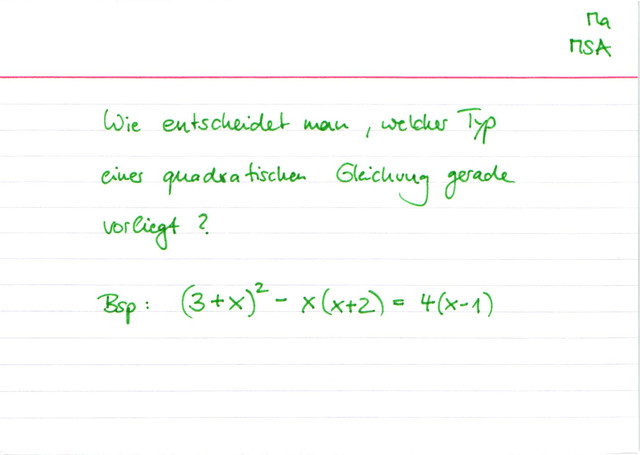 Ma
MSA
Wie entscheidet man, welcher Typ
einer quadratischen Gleichung gerade
vorliegt?
Bsp: (3+x)² - x(x+2) = 4(x-1)